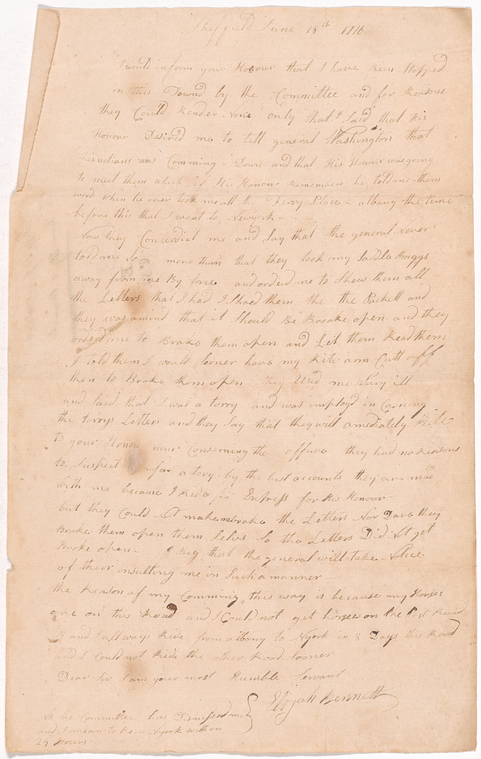 Sheffield June 15th 1776
I write inform your Honour that I have been Stopped
in this Townd by the Committee and for Reasons
they Could Render None only that I Said that His
Honour Desired me to tell general Washington that
Indians was Comming Down and that His Honour was going
to meet them which if His Honour Remembers he told me them
word when he over took me att the Ferry Place albany the time
before this that I went to Newyork
Now they Contradict me and Say that the general never
told me So more than that they took my Saddle Baggs
away from me By force and orderd me to Show them all
the Letters that I had I Shoed them the the Packett and
they was amind that it Should Be Broake open and they
orderd me to Brake them open and Let them Read them
I told them I would Sooner have my Rite arm Cutt off
then to Brake them open they Used me Very ill
and Said that I was a torry and was employd in Carring
the torrys Letters and they Say that they will amediately Rite
to your Honour Concerning the affare they had no Reasons
to Suspect for a tory by the best accounts they are mad
with me because I Ride Express for His Honour
but they Could Not make me brake the Letters Nor Dave they
Brake them open them Selves So the Letters Did Not get
Broke open I beg that the general will take Notice
of their insulting me in Such a manner
the Reason of my Comming this way is because my Horses
are on this Road and I Could not get horses on the Post Road
and I allways Ride from albany to NYork in 3 Days this Road
and I Could not Ride the other Road Sooner
Dear Sir I am your most Humble Servant
Elijah Bennett
the Committee has Dismissed me
and I mean to be in NYork with in
47 Hours